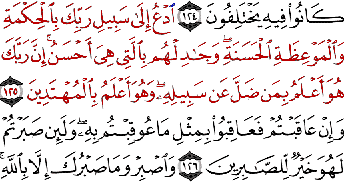 كَانُوا۟ فِيهِ يَخْتَلِفُونَ ١٢٤ ٱدْعُ إِلَىٰ سَبِيلِ رَبِّكَ بِٱلْحِكْمَةِ
وَٱلْمَوْعِظَةِ ٱلْحَسَنَةِ ۖ وَجَٰدِلْهُم بِٱلَّتِى هِىَ أَحْسَنُ ۚ إِنَّ رَبَّكَ
هُوَ أَعْلَمُ بِمَن ضَلَّ عَن سَبِيلِهِۦ ۖ وَهُوَ أَعْلَمُ بِٱلْمُهْتَدِينَ ١٢٥
وَإِنْ عَاقَبْتُمْ فَعَاقِبُوا۟ بِمِثْلِ مَا عُوقِبْتُم بِهِۦ ۖ وَلَئِن صَبَرْتُمْ
لَهُوَ خَيْرٌ لِّلصَّٰبِرِينَ ١٢٦ وَٱصْبِرْ وَمَا صَبْرُكَ إِلَّا بِٱللَّهِ ۚ